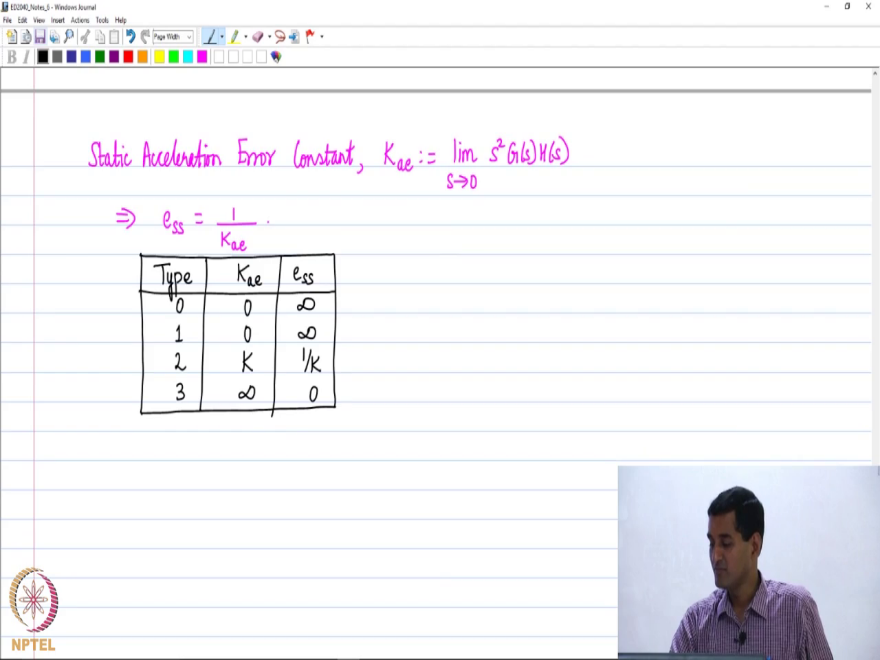 ED2040_Notes_6 - Windows Journal
File Edit View Insert Actions Tools Help
Page Width
B I
Static Acceleration Error Constant, Kae := lim s² G(s) H(s)
s→0
⇒ ess = 1/Kae .
Type Kae ess
0 0 ∞
1 0 ∞
2 K 1/K
3 ∞ 0
NPTEL